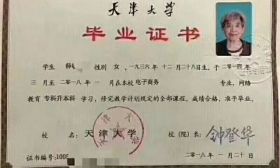 天津大学
毕业证书
学生 薛 性别 女,一九三六年 十二月 二十八日生,于二〇一四年
三月至二〇一八年 一月在本校 电子商务 专业,网络
教育 专科升本科 学习,修完教学计划规定的全部课程,成绩合格,准予毕业。
校 名: 天津大学 校(院)长: 钟登华
证书编号:100
二〇一八年 一月二十日